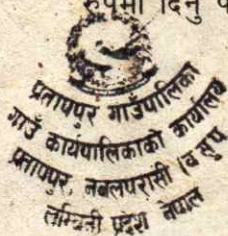 रुपमा दिनु प
प्रतापपुर गाउँपालिका
गाउँ कार्यपालिकाको कार्यालय
प्रतापपुर, नवलपरासी (ब सु प
लुम्बिनी प्रदेश नेपाल